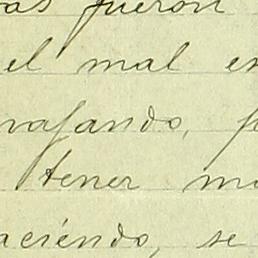 as fueron
el mal e
ando, f
tener m
aciendo, se